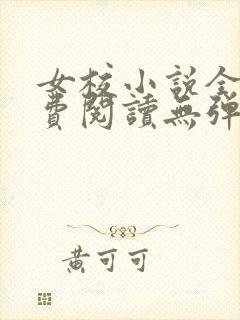 女校小说全
費閱讀無彈
黃可可